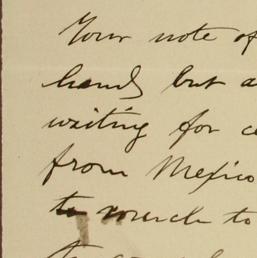 Your note of
hands but a
waiting for c
from Mexico
to
to